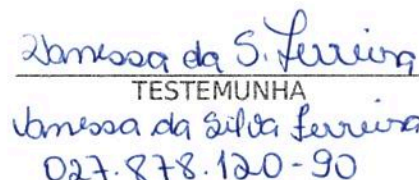 Vanessa da S. Ferreira
TESTEMUNHA
Vanessa da Silva Ferreira
027.878.120-90